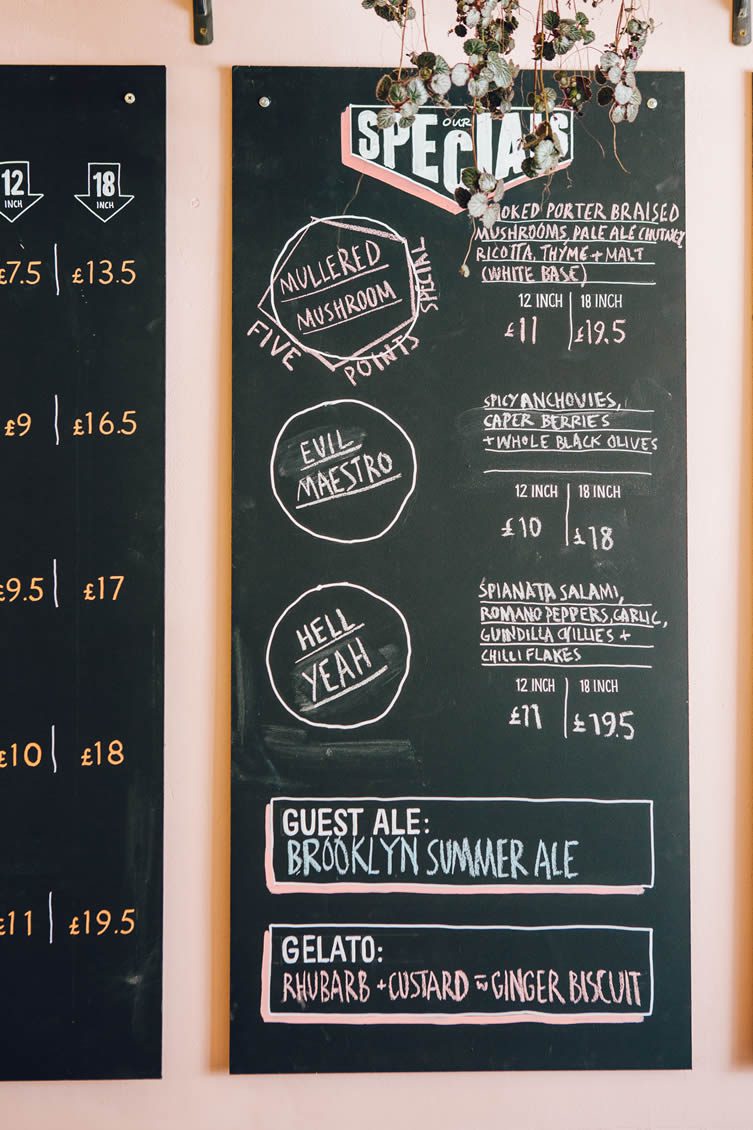 12
INCH
18
INCH
£7.5 £13.5
£9 £16.5
£9.5 £17
£10 £18
£11 £19.5
OUR
SPECIALS
MULLERED
MUSHROOM
FIVE POINTS SPECIAL
MUSHROOMS, PALE ALE CHUTNEY,
PORTER BRAISED
RICOTTA, THYME + MALT
(WHITE BASE)
12 INCH 18 INCH
£11 £19.5
EVIL
MAESTRO
SPICY ANCHOVIES,
CAPER BERRIES
+ WHOLE BLACK OLIVES
12 INCH 18 INCH
£10 £18
HELL
YEAH
SPIANATA SALAMI,
ROMANO PEPPERS, GARLIC,
GUINDILLA CHILLIES +
CHILLI FLAKES
12 INCH 18 INCH
£11 £19.5
GUEST ALE:
BROOKLYN SUMMER ALE
GELATO:
RHUBARB + CUSTARD w GINGER BISCUIT